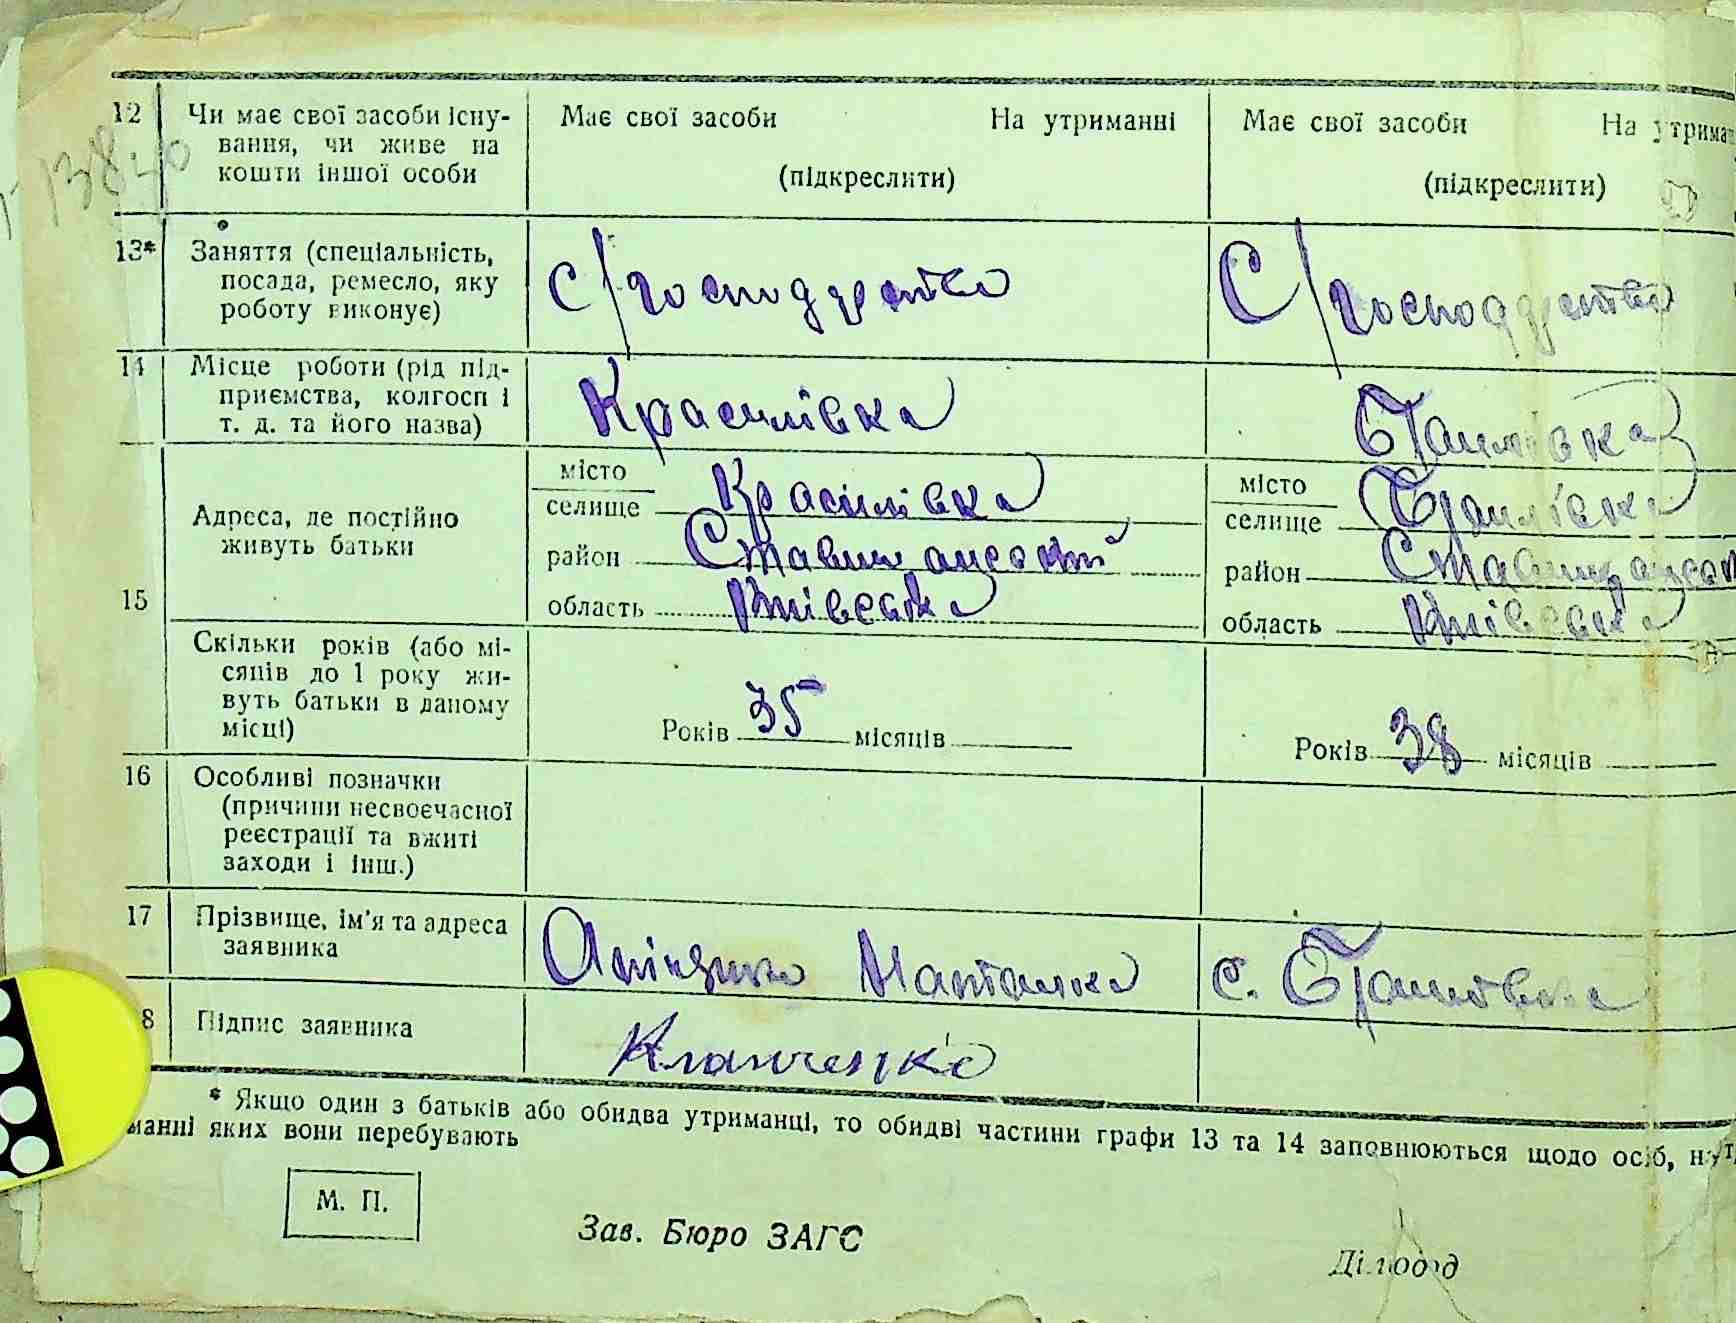 12 Чи має свої засоби існу-
вання, чи живе на
кошти іншої особи
Має свої засоби На утриманні
(підкреслити)
Має свої засоби На утрима
(підкреслити)
13* Заняття (спеціальність,
посада, ремесло, яку
роботу виконує)
С/господарство
С/господарство
14 Місце роботи (рід під-
приємства, колгосп і
т. д. та його назва)
Красилівка
15 Адреса, де постійно
живуть батьки
місто
селище Красилівка
район Ставищанский
область Київска
місто
селище
район Ставищанск
область Київска
Скільки років (або мі-
сяців до 1 року жи-
вуть батьки в даному
місці)
Років 35 місяців
Років 38 місяців
16 Особливі позначки
(причини несвоєчасної
реєстрації та вжиті
заходи і інш.)
17 Прізвище, ім'я та адреса
заявника
Наталка
с.
8 Підпис заявника
* Якщо один з батьків або обидва утриманці, то обидві частини графи 13 та 14 заповнюються щодо осіб, на ут
манні яких вони перебувають
М. П.
Зав. Бюро ЗАГС
Діловод